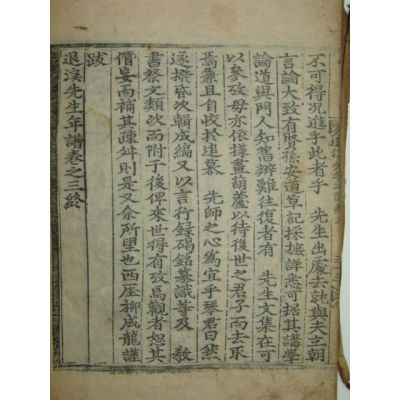 不可得況進乎此者乎 先生出處去就與夫立朝
言論大致有賢孫安道草記採摭詳悉可據其講學
論道與門人知舊辨難往復者有 先生文集在可
以參攷毋亦依樣畫葫蘆以待後世之君子而去取
焉兼且自效於追慕 先師之心爲宜乎琴君曰然
遂撥昏次輯成編又以言行錄碣銘墓識等及 敎
書祭文類次而附于後俾來世得有攷焉觀者恕其
僭妄而補其踈舛則是又余所望也西厓柳成龍謹
跋
退溪先生年譜卷之三終